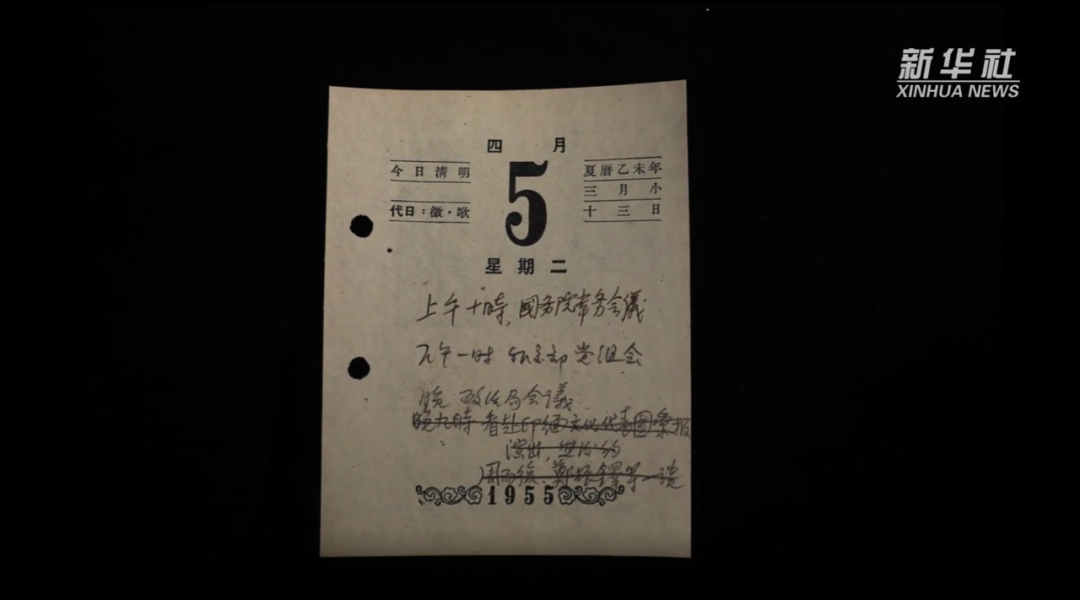 新华社
XINHUA NEWS
四 月
今日清明
代日：微·歌
5
夏曆乙未年
三月小
十三日
星期二
上午十時，國务院常务会議
下午一时 外交部党组会
晚 政治局会議
晚九時 看赴印緬文化代表團彙报
演出，並約
周而復、鄭振鐸等一談
1955